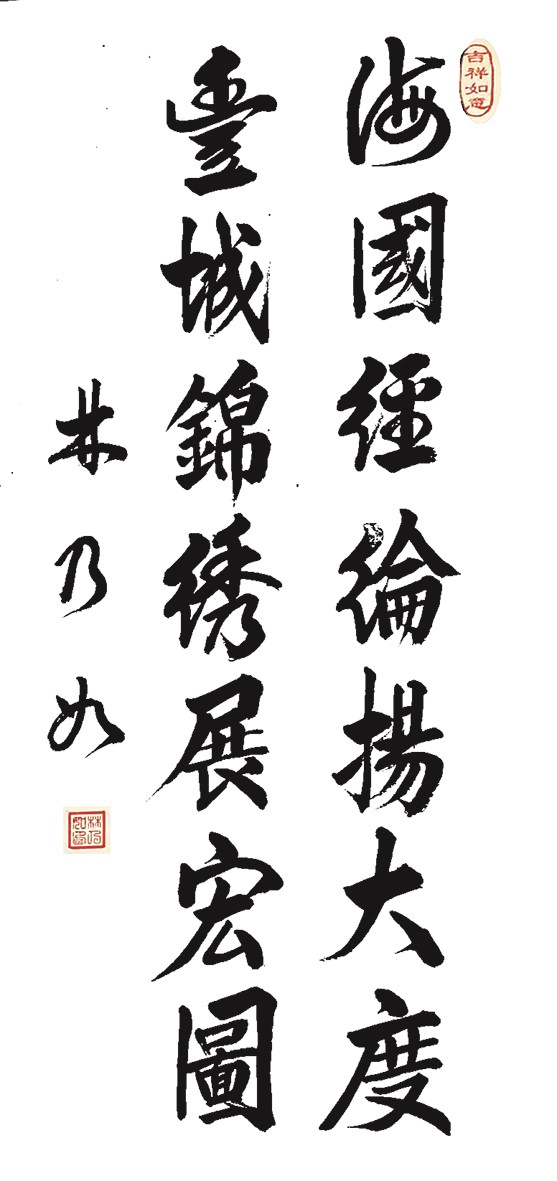 吉祥如意
海國經綸揚大度
豊城錦绣展宏圖
林乃如